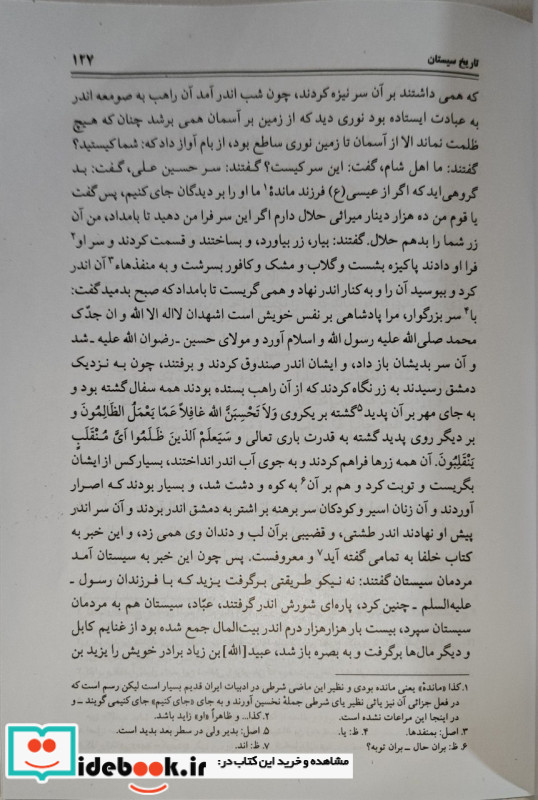 تاریخ سیستان
۱۲۷
که همی داشتند بر آن سر نیزه کردند، چون شب اندر آمد آن راهب به صومعه اندر
به عبادت ایستاده بود نوری دید که از زمین بر آسمان همی برشد چنان که هیچ
ظلمت نماند الا از آسمان تا زمین نوری ساطع بود، از بام آواز داد که: شما کیستید؟
گفتند: ما اهل شام، گفت: این سر کیست؟ گفتند: سر حسین علی، گفت: بد
گروهی‌اید که اگر از عیسی(ع) فرزند ماندهٔ۱ ما او را بر دیدگان جای کنیم، پس گفت
یا قوم من ده هزار دینار میراثی حلال دارم اگر این سر فرا من دهید تا بامداد، من آن
زر شما را بدهم حلال. گفتند: بیار، زر بیاورد، و بساختند و قسمت کردند و سر او۲
فرا او دادند پاکیزه بشست و گلاب و مشک و کافور بسرشت و به منفذهاء۳ آن اندر
کرد و ببوسید آن را و به کنار اندر نهاد و همی گریست تا بامداد که صبح بدمید گفت:
یا۴ سر بزرگوار، مرا پادشاهی بر نفس خویش است اشهدان لااله الا الله و ان جدّک
محمد صلی الله علیه رسول الله و اسلام آورد و مولای حسین ـ رضوان الله علیه ـ شد
و آن سر بدیشان باز داد، و ایشان اندر صندوق کردند و برفتند، چون به نزدیک
دمشق رسیدند به زر نگاه کردند که از آن راهب بستده بودند همه سفال گشته بود و
به جای مهر بر آن پدید۵ گشته بر یکروی وَلاَ تَحْسِبَنَّ الله غافِلاً عَمّا یَعْمَلُ الظالِمُونَ و
بر دیگر روی پدید گشته به قدرت باری تعالی و سَیَعلَم الَذینَ ظَلَموا اَیَّ مُنْقَلَبٍ
یَنْقَلِبُونَ. آن همه زرها فراهم کردند و به جوی آب اندر انداختند، بسیار کس از ایشان
بگریست و توبت کرد و هم بر آن۶ به کوه و دشت شد، و بسیار بودند که اصرار
آوردند و آن زنان اسیر و کودکان سر برهنه بر اشتر به دمشق اندر بردند و آن سر اندر
پیش او نهادند اندر طشتی، و قضیبی برآن لب و دندان وی همی زد، و این خبر به
کتاب خلفا به تمامی گفته آید۷ و معروفست. پس چون این خبر به سیستان آمد
مردمان سیستان گفتند: نه نیکو طریقتی برگرفت یزید که با فرزندان رسول ـ
علیه‌السلم ـ چنین کرد، پاره‌ای شورش اندر گرفتند، عبّاد، سیستان هم به مردمان
سیستان سپرد، بیست بار هزارهزار درم اندر بیت‌المال جمع شده بود از غنایم کابل
و دیگر مال‌ها برگرفت و به بصره باز شد، عبید[الله] بن زیاد برادر خویش را یزید بن
۱. کذا «ماندهٔ» یعنی مانده بودی و نظیر این ماضی شرطی در ادبیات ایران قدیم بسیار است لیکن رسم است که
در فعل جزائی آن نیز یائی نظیر یای شرطی جملهٔ نخسین آورند و به جای «جای کنیم» جای کنیمی گویند ـ و
در اینجا این مراعات نشده است.
۲. کذا... و ظاهراً «او» زاید باشد.
۳. اصل: بمنفدها.
۴. ظ: یا.
۵. اصل: بدیر ولی در سطر بعد بدید است.
۶. ظ: بران حال ـ بران توبه؟
۷. ظ: اند.
مشاهده و خرید این کتاب در:
idebook.ir